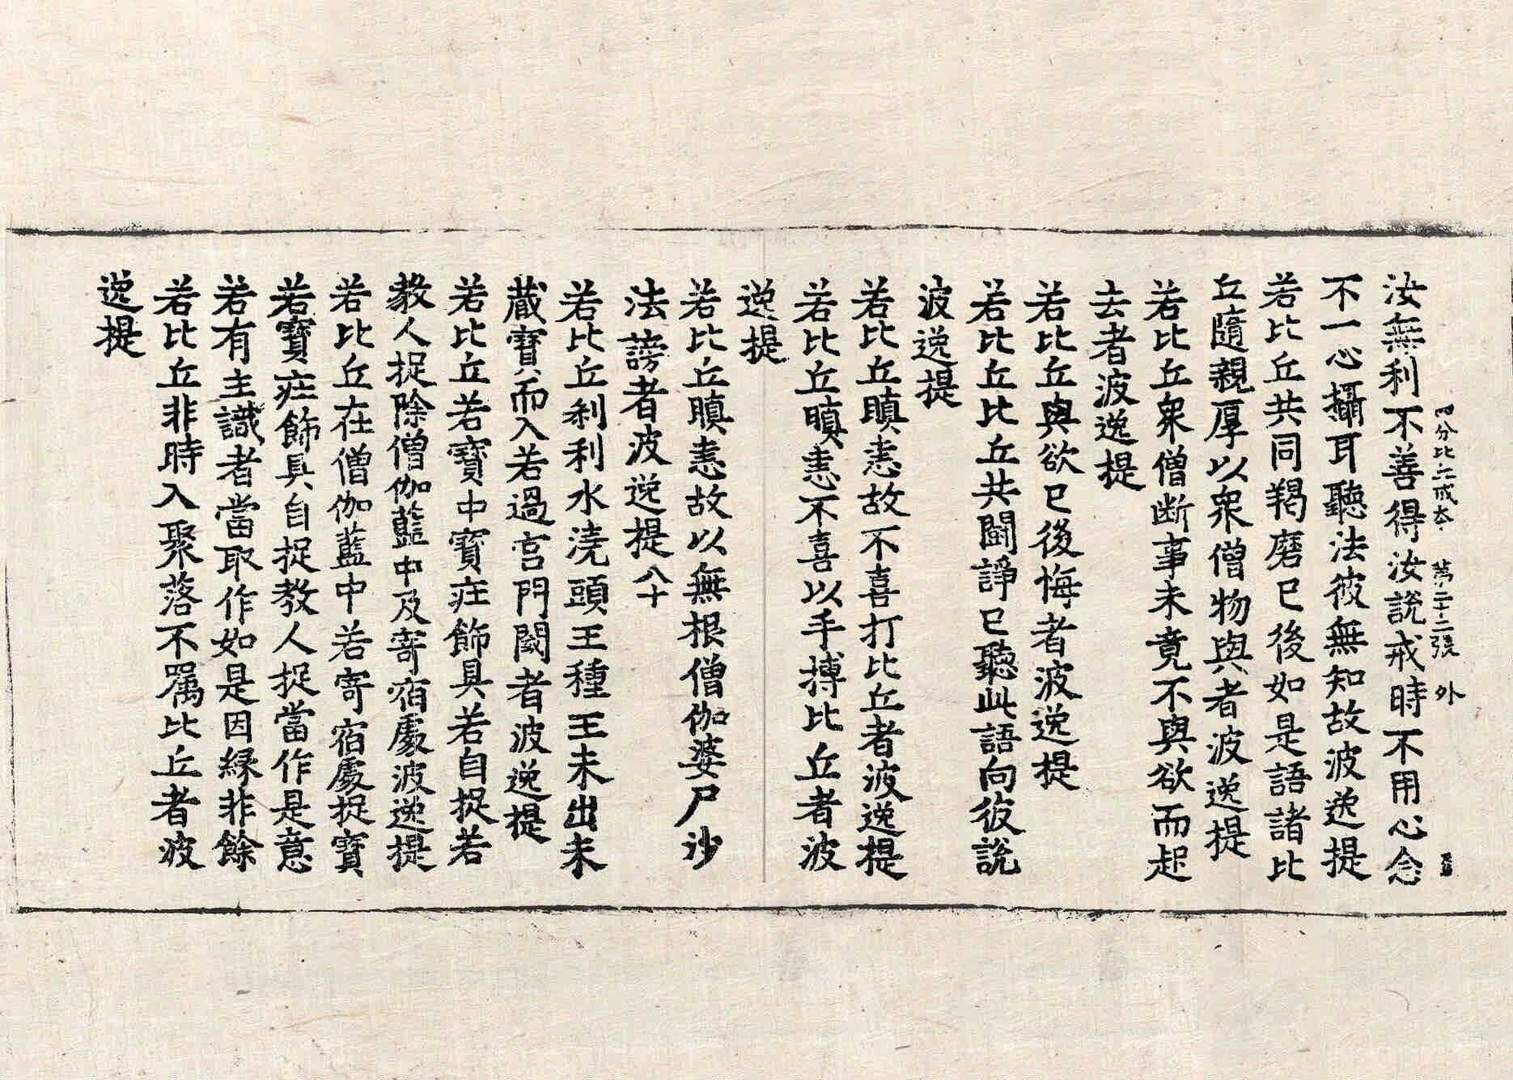 汝無利不善得汝說戒時不用心念
四分比丘戒本　第二十二張　外
不一心攝耳聽法彼無知故波逸提
若比丘共同羯磨已後如是語諸比
丘隨親厚以衆僧物與者波逸提
若比丘衆僧断事未竟不與欲而起
去者波逸提
若比丘與欲已後悔者波逸提
若比丘比丘共鬪諍已聽此語向彼說
波逸提
若比丘瞋恚故不喜打比丘者波逸提
若比丘瞋恚不喜以手搏比丘者波
逸提
若比丘瞋恚故以無根僧伽婆尸沙
法謗者波逸提八十
若比丘刹利水澆頭王種王未出未
藏寶而入若過宮門閾者波逸提
若比丘若寶中寶庄飾具若自捉若
教人捉除僧伽藍中及寄宿處波逸提
若比丘在僧伽藍中若寄宿處捉寶
若寶庄飾具自捉教人捉當作是意
若有主識者當取作如是因縁非餘
若比丘非時入聚落不囑比丘者波
逸提